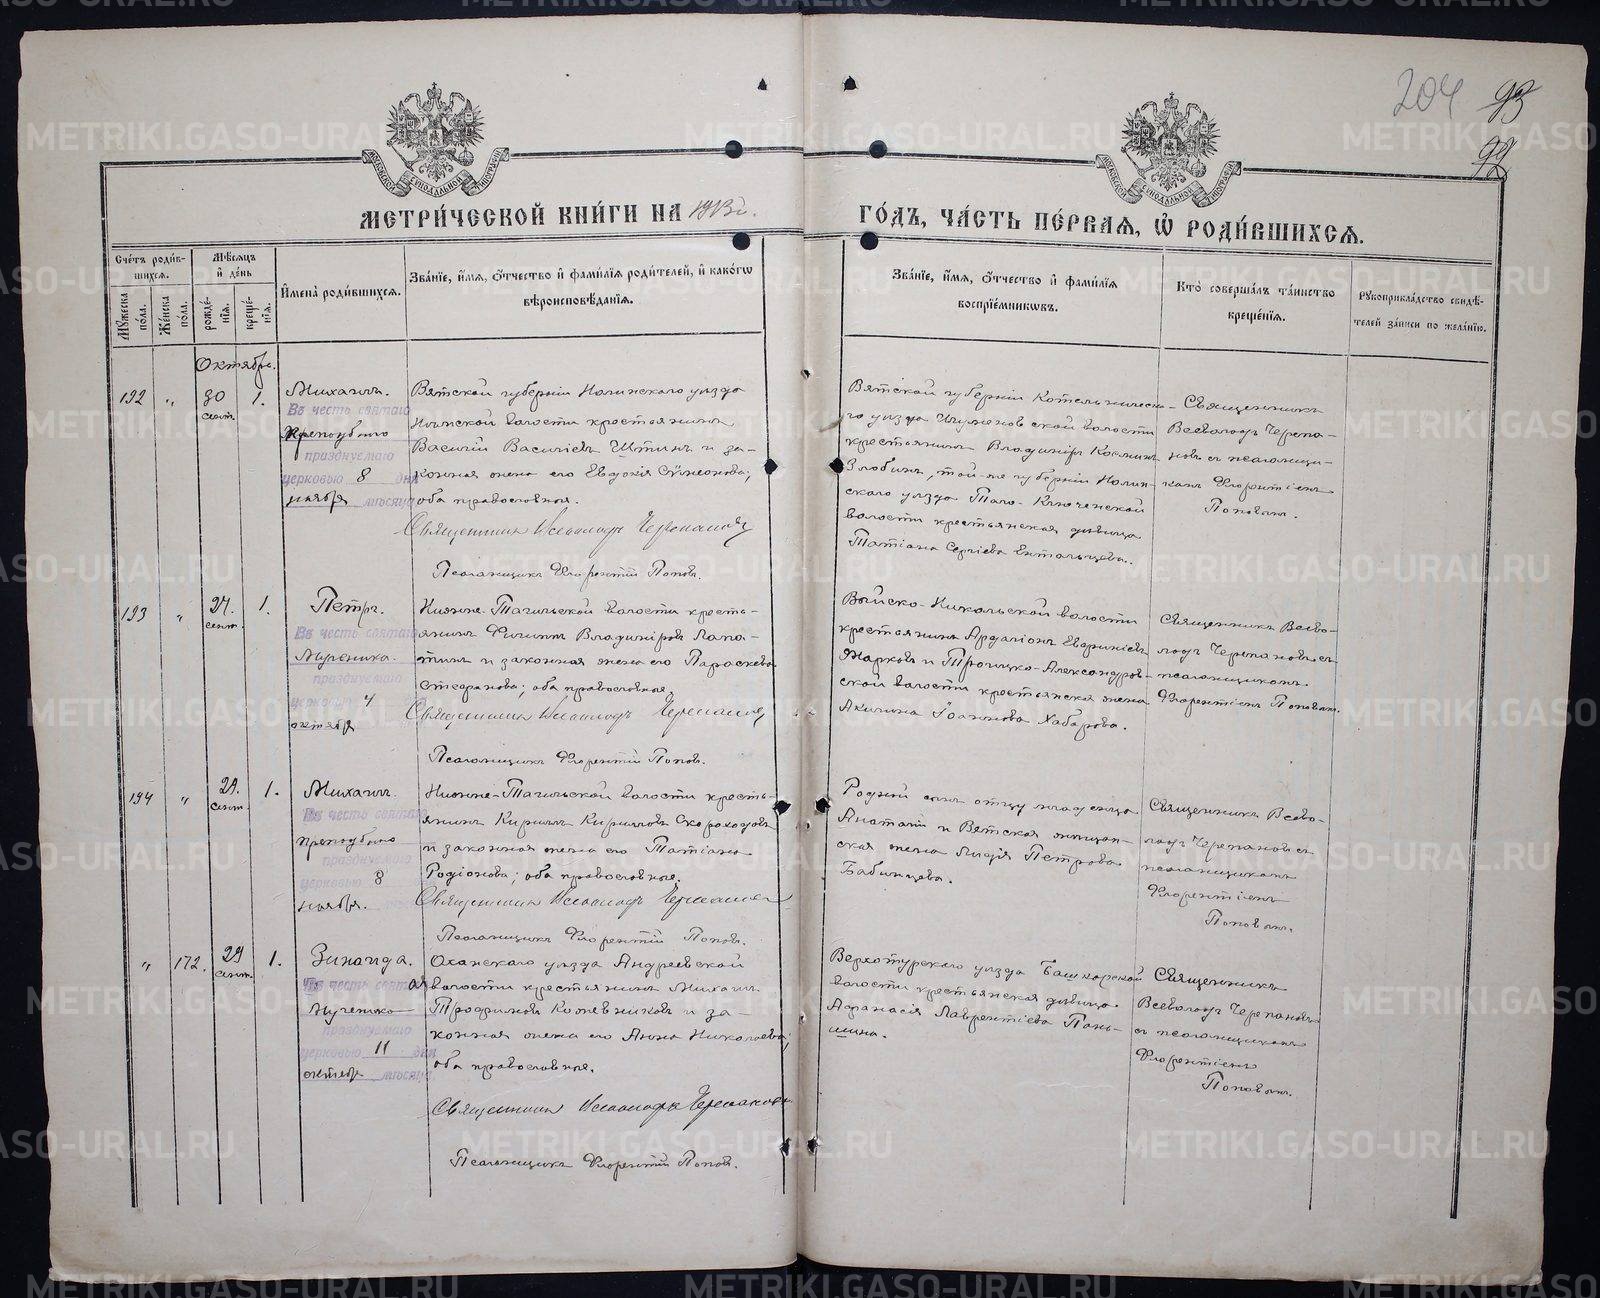 204 93
92
МЕТРИ́ЧЕСКОЙ КНИ́ГИ НА 1913 г.
ГО́ДЪ, ЧА́СТЬ ПЕ́РВАЯ, Ѡ҆ РОДИ́ВШИХСѦ.
Сче́тъ роди́вшихсѧ.
Мꙋ́жеска по́ла.
Же́нска по́ла.
Мѣ́сѧцъ и҆ де́нь
рожде́нїѧ.
креще́нїѧ.
И҆мена̀ роди́вшихсѧ.
Зва́нїе, и҆́мѧ, ѻ҆́тчество и҆ фами́лїѧ роди́телей, и҆ како́гѡ
вѣроисповѣ́данїѧ.
Зва́нїе, и҆́мѧ, ѻ҆́тчество и҆ фами́лїѧ
воспрїе́мникѡвъ.
Кто̀ соверша́лъ та́инство
креще́нїѧ.
Рꙋкоприкла́дство свидѣ́-
телей за́писи по жела́нїю.
Октябрь.
192 „ 30 сент. 1.
Михаилъ.
Въ честь святаго
Преподобнаго
празднуемаго
церковью 8 дня
ноября мѣсяца
Вятской губерніи Нолинскаго уѣзда
волости крестьянинъ
Василій Васильевъ и за-
конная жена его Евдокія Сѵмеонова;
оба православные.
Священникъ Всеволодъ Черепановъ
Псаломщикъ Флорентій Поповъ.
Вятской губерніи Котельническа-
го уѣзда волости
крестьянинъ Владиміръ Косминъ
Злобинъ, той-же губерніи Нолин-
скаго уѣзда Ключевской
волости крестьянская дѣвица
Татіана Сергіева
Священникъ
Всеволодъ Черепа-
новъ съ псаломщи-
комъ Флорентіемъ
Поповымъ.
193 „ 27. сент. 1.
Петръ.
Въ честь святаго
празднуемаго
церковью 4
октября
Нижне-Тагильской волости кресть-
янинъ Филиппъ Владиміровъ Лапа-
тинъ и законная жена его Параскева
Стефанова; оба православные.
Священникъ Всеволодъ Черепановъ
Псаломщикъ Флорентій Поповъ.
Выйско-Никольской волости
крестьянинъ Ардаліонъ
Жарковъ и Троицко-Александров-
ской волости крестьянская жена
Акилина Іоаннова Хабарова.
Священникъ Всево-
лодъ Черепановъ съ
псаломщикомъ
Флорентіемъ Поповымъ.
194 „ 29. сент. 1.
Михаилъ.
Въ честь святаго
преподобнаго
празднуемаго
церковью 8
ноября.
Нижне-Тагильской волости кресть-
янинъ Кириллъ Кирилловъ Скороходовъ
и законная жена его Татіана
Родіонова; оба православные.
Священникъ Всеволодъ Черепановъ
Псаломщикъ Флорентій Поповъ.
Родной сынъ отцу младенца
Анатолій и Вятская мѣщан-
ская жена Лидія Петрова
Бабинцева.
Священникъ Всево-
лодъ Черепановъ съ
псаломщикомъ
Флорентіемъ
Поповымъ.
„ 172. 29 сент. 1.
Зинаида.
Въ честь святой
Мученицы
празднуемаго
церковью 11 дня
октября мѣсяца
Оханскаго уѣзда Андреевской
волости крестьянинъ Михаилъ
Трофимовъ Кожевниковъ и за-
конная жена его Анна Николаева;
оба православные.
Священникъ Всеволодъ Черепановъ
Псаломщикъ Флорентій Поповъ.
Верхотурскаго уѣзда Башкарской
волости крестьянская дѣвица
Афанасія Лаврентіева Пань-
шина.
Священникъ
Всеволодъ Черепановъ
съ псаломщикомъ
Флорентіемъ
Поповымъ.
METRIKI.GASO-URAL.RU